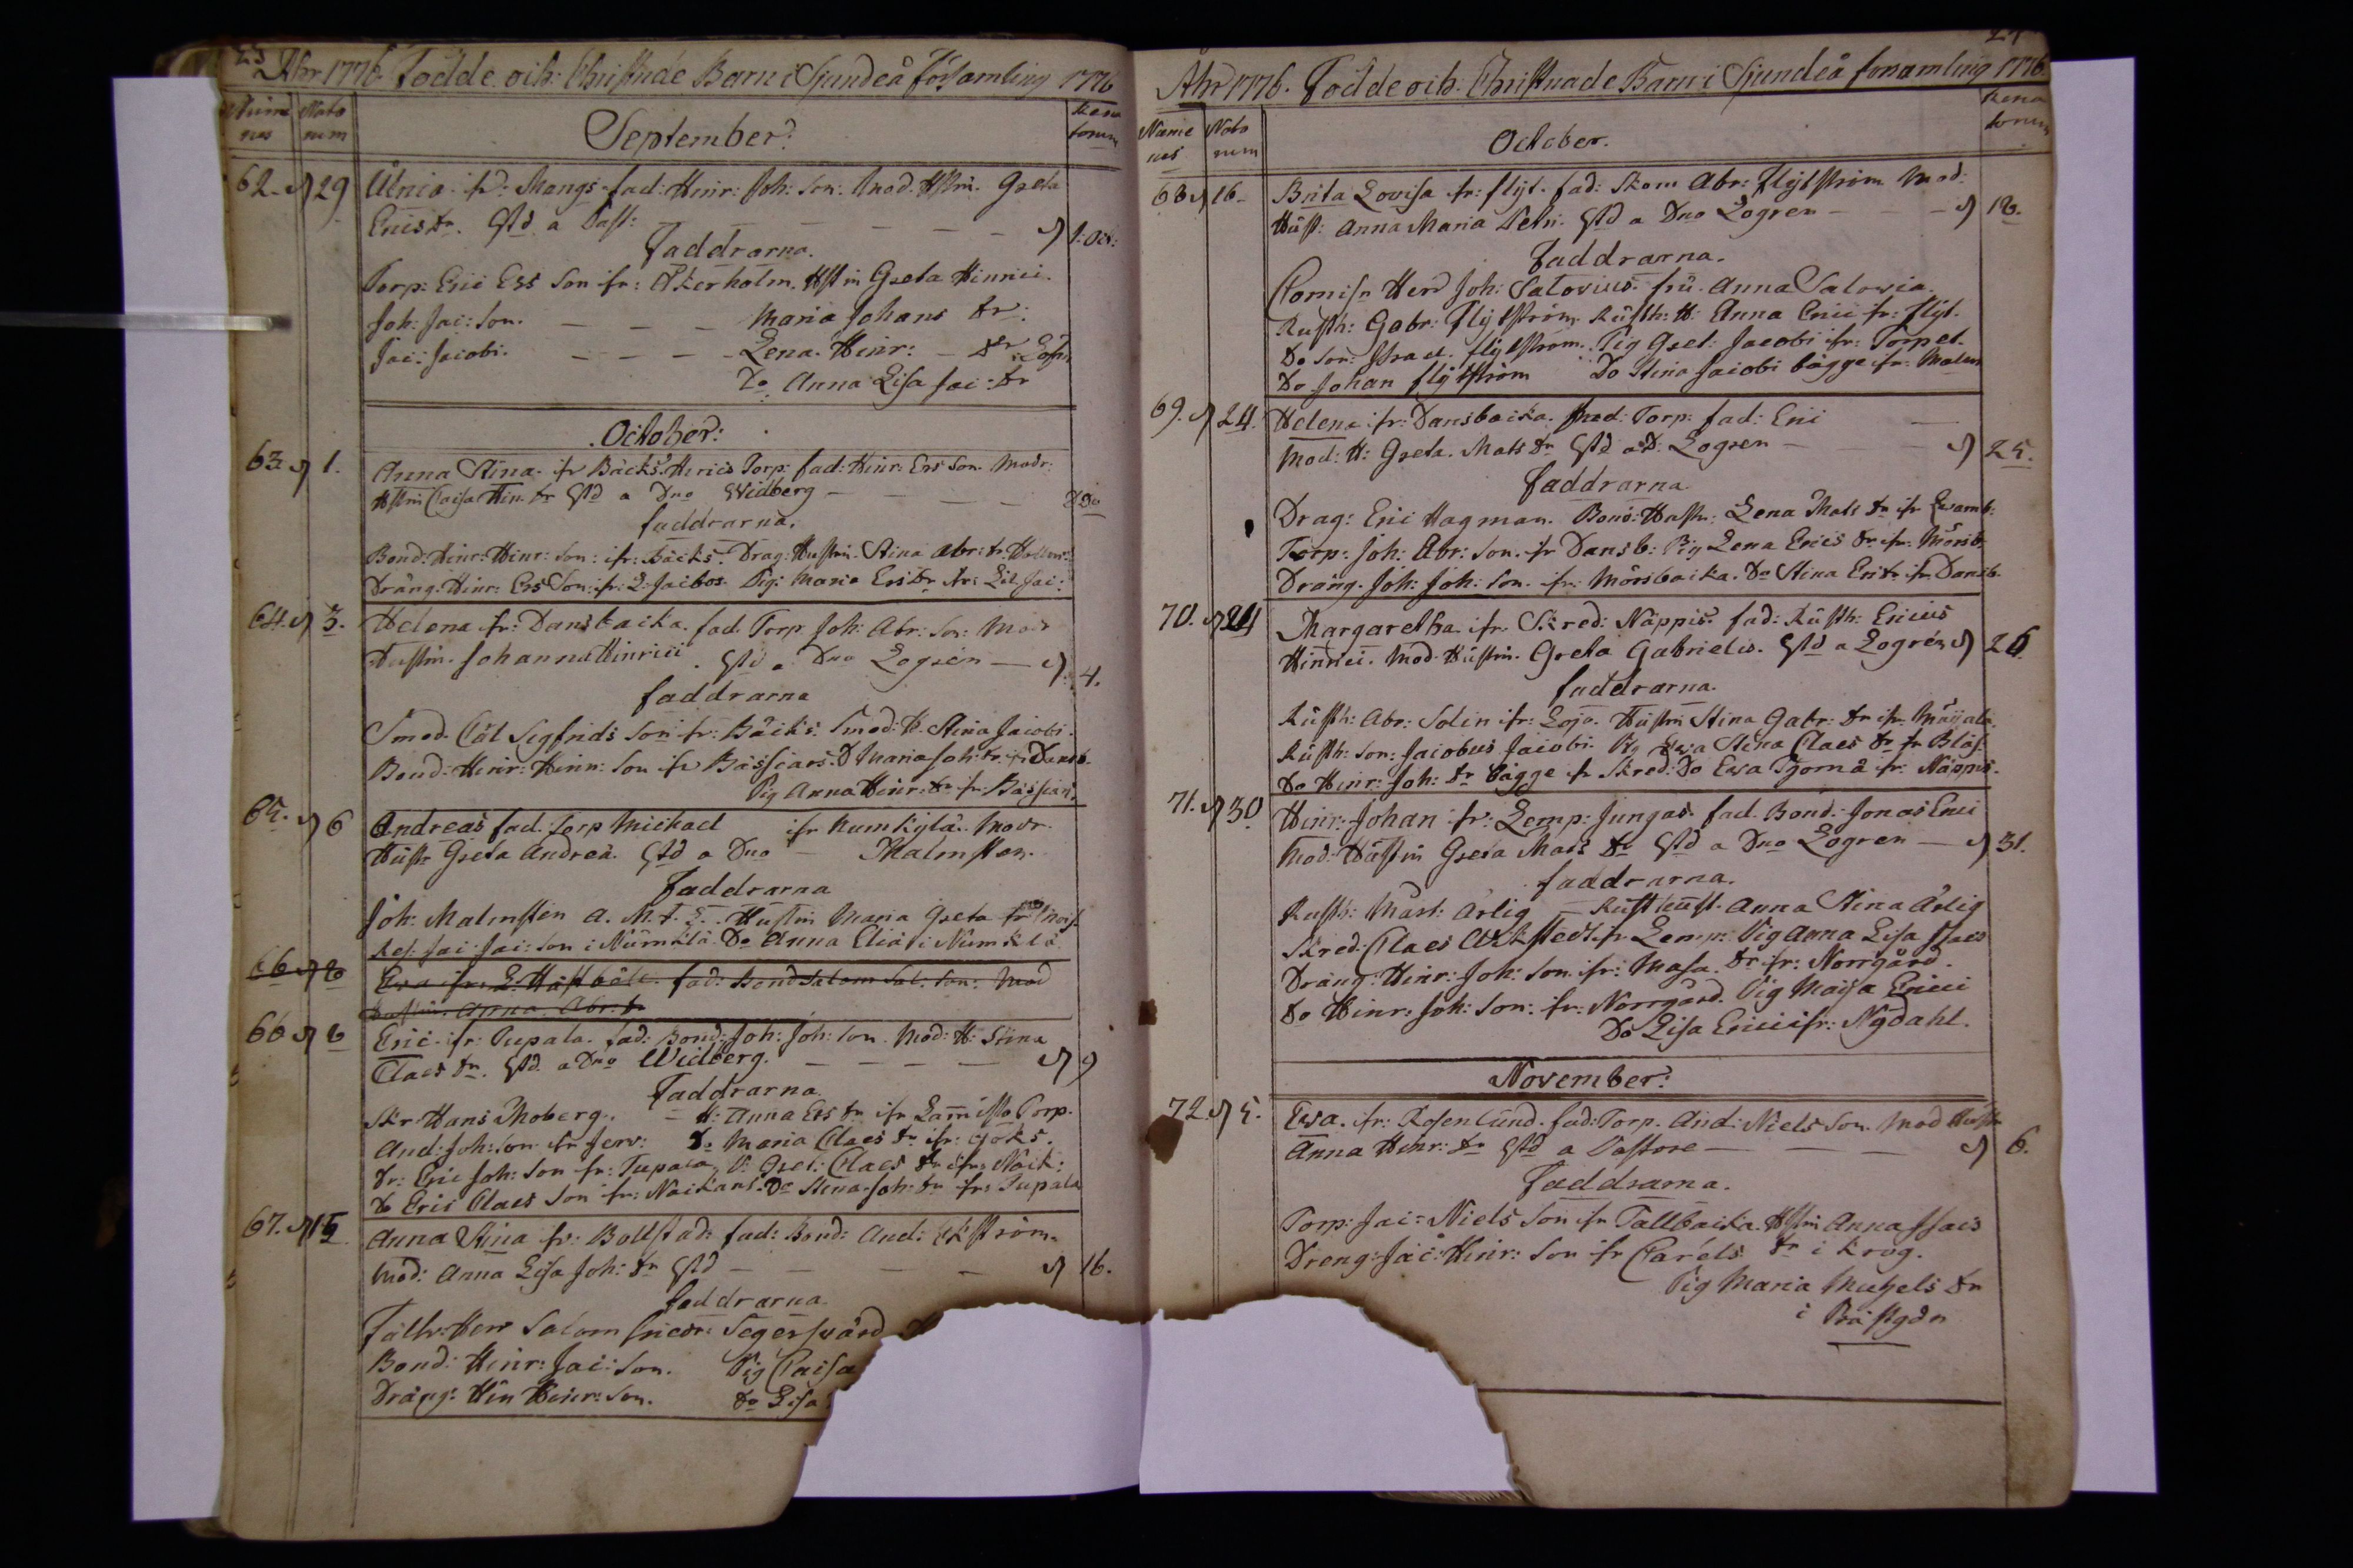 23
Åhr 1776 Födde och Christnade Barn i Sjundeå Församling 1776
Nume
rus
Nato
rum
September:
Rena
torum
62. d 29 Ulrica fr: Mangs fad: Hinr: Joh: Son: Mod. Hstru. Greta
Ericsdr. Gtd a Past: — — — — d 1. Oct:
Faddrarna.
Torp: Eric Ers Son fr: Åkerholm. Hstru Greta Hinrici.
Joh: Jac: Son. — — — Maria Johans dr:
Jac: Jacobi. — — — Lena Hinr: dr
Do Anna Lisa Jac: dr
October:
63. d 1. Anna Stina fr Bäcks Torp: fad: Hinr: Ers Son. Modr:
Hstru Caisa Hin. dr Gtd a Dno Widberg — — — —
faddrarna.
Bond: Hinr: Hinr: Son: fr: Bäcks. Drag: Hustru. Stina Abr: dr
Dräng: Hinr: Ers Son: fr: L: Jacbos Pig: Maria Ersdr fr: Lil Jac:
64. d 3. Helena fr: Dansbacka. fad. Torp Joh: Abr: Son: Modr
Hustru. Johanna Hinrici. Gtd a Dno Logren — d. 4.
faddrarna
Smed. Carl Sigfrids Son fr: Bäcks. Smed: H. Stina Jacobi.
Bond: Hinr: Hinr: Son fr Bässars. D Maria Joh: dr. fr Dansb.
Pig Anna Hinr: dr fr: Bässars
65. d 6 Andreas fad: Torp Michael fr Numkylä. Modr.
Hustr Greta Andreæ. Gtd a Dno — Malmsten.
Faddrarna
Joh: Malmsten A. M. Hustru Maria Greta
Jac: Jac: Son i Numkla Do Anna Eliæ i Numkla
66 d 6
Ewa fr: fad: Bond Salom Sal: Son: Mod
Hustru. Anna Abr: dr
66 d 6 Eric fr: Pupala. fad: Bond: Joh: Joh: Son. Mod: H: Stina
Claes dr. Gtd. a Dno Widberg. — — — — d 9
Faddrarna
Skr Hans Moberg. — H: Anna Ers dr fr Torp.
And: Joh: Son fr Jerv: D. Maria Claes dr fr: Göks.
Dr: Eric Joh: Son fr: Pupala P: Gret: Claes dr fr: Näck:
Do Eric Claes Son fr: Näckans. Do Stina Joh: dr fr: Pupala
67. d 15 Anna Stina fr: Bollstad: fad: Bond: And: Ekström
Mod: Anna Lisa Joh: dr Gtd — — — — d 16.
faddrarna.
Fältv: Herr Salom Friedr: Segersvärd
Bond: Hinr: Jac: Son. Pig Caisa
Dräng: Hin Hinr: Son. Do Lisa
Åhr 1776. Födde och Christnade Barn i Sjundeå forsamling 1776.
Nume
rus
Nato
rum
October.
Rena
torum
68 d 16 Brita Lovisa fr: Flyt. fad: Skom Abr: Flytström Mod:
Hust: Anna Maria Petri. Gtd a Dno Logren — — — d 18.
Faddrarna.
Comisr Herr Joh: Salovius. fru Anna Salovia.
Rusth: Gabr: Flytström. Rusth: H: Anna Erici fr: Flyt.
Do Son: Israel Flytström. Pig Gret: Jacobi fr: Torpet.
Do Johan Flytström Do Stina Jacobi bägge fr: Malm
69. d 24. Helena fr: Dansbacka. Torp: fad: Eric —
Mod: H: Greta Mats dr Gtd a D: Logren — d 25.
Faddrarna
Drag: Eric Hagman. Bond: Hustr: Lena Mats dr fr Qvarnb:
Torp: Joh: Abr: Son. fr Dansb: Pig Lena Erics dr fr: Mörsb:
Dräng. Joh: Joh: Son. fr: Mörsbacka. Do Stina Ers dr fr Dansb.
70. d 24 Margaretha fr. Skred: Näppis. fad: Rusth: Ericus
Hinrici. Mod: Hustru. Greta Gabrielis. Gtd a Logrén d 26.
faddrarna.
Rusth: Abr: Solin fr: Lojo. Hustru Stina Gabr: dr fr: Möyala
Rusth: Son: Jacobus Jacobi. Pig Stina Claes dr fr Bläs.
Do Hinr: Joh: dr bägge fr Skred: Do Ewa Björnå fr: Näppis.
71. d 30 Hinr: Johan fr: Lemp: Jungas. fad. Bond: Jonas Erici
Mod: Hustru Greta Mats dr Gtd a Dno Logren — d 31.
faddrarna.
Rusth: Mårt: Ärlig — Rust hust. Anna Stina Ärlig
Skred: Claes Eckstedt fr Lemp: Pig Anna Lisa Isacs
Dräng: Hinr: Joh: Son. fr: Masa. dr fr: Norrgård.
Do Hinr: Joh: Son: fr: Norrgård. Pig Maija Erici
Do Lisa Erici fr: Nydahl.
November:
72. d 5. Ewa. fr: Rosenlund. fad: Torp. And: Niels Son. Mod Hustr
Anna Hinr: dr Gtd a Pastore — — — d 6.
Faddrarna.
Torp: Jac: Niels Son fr Tallbacka. Hstru Anna Isacs
Dreng: Jac: Hinr: Son fr Carels dr i Krog.
Pig Maria Michels dr
i Prästgdn